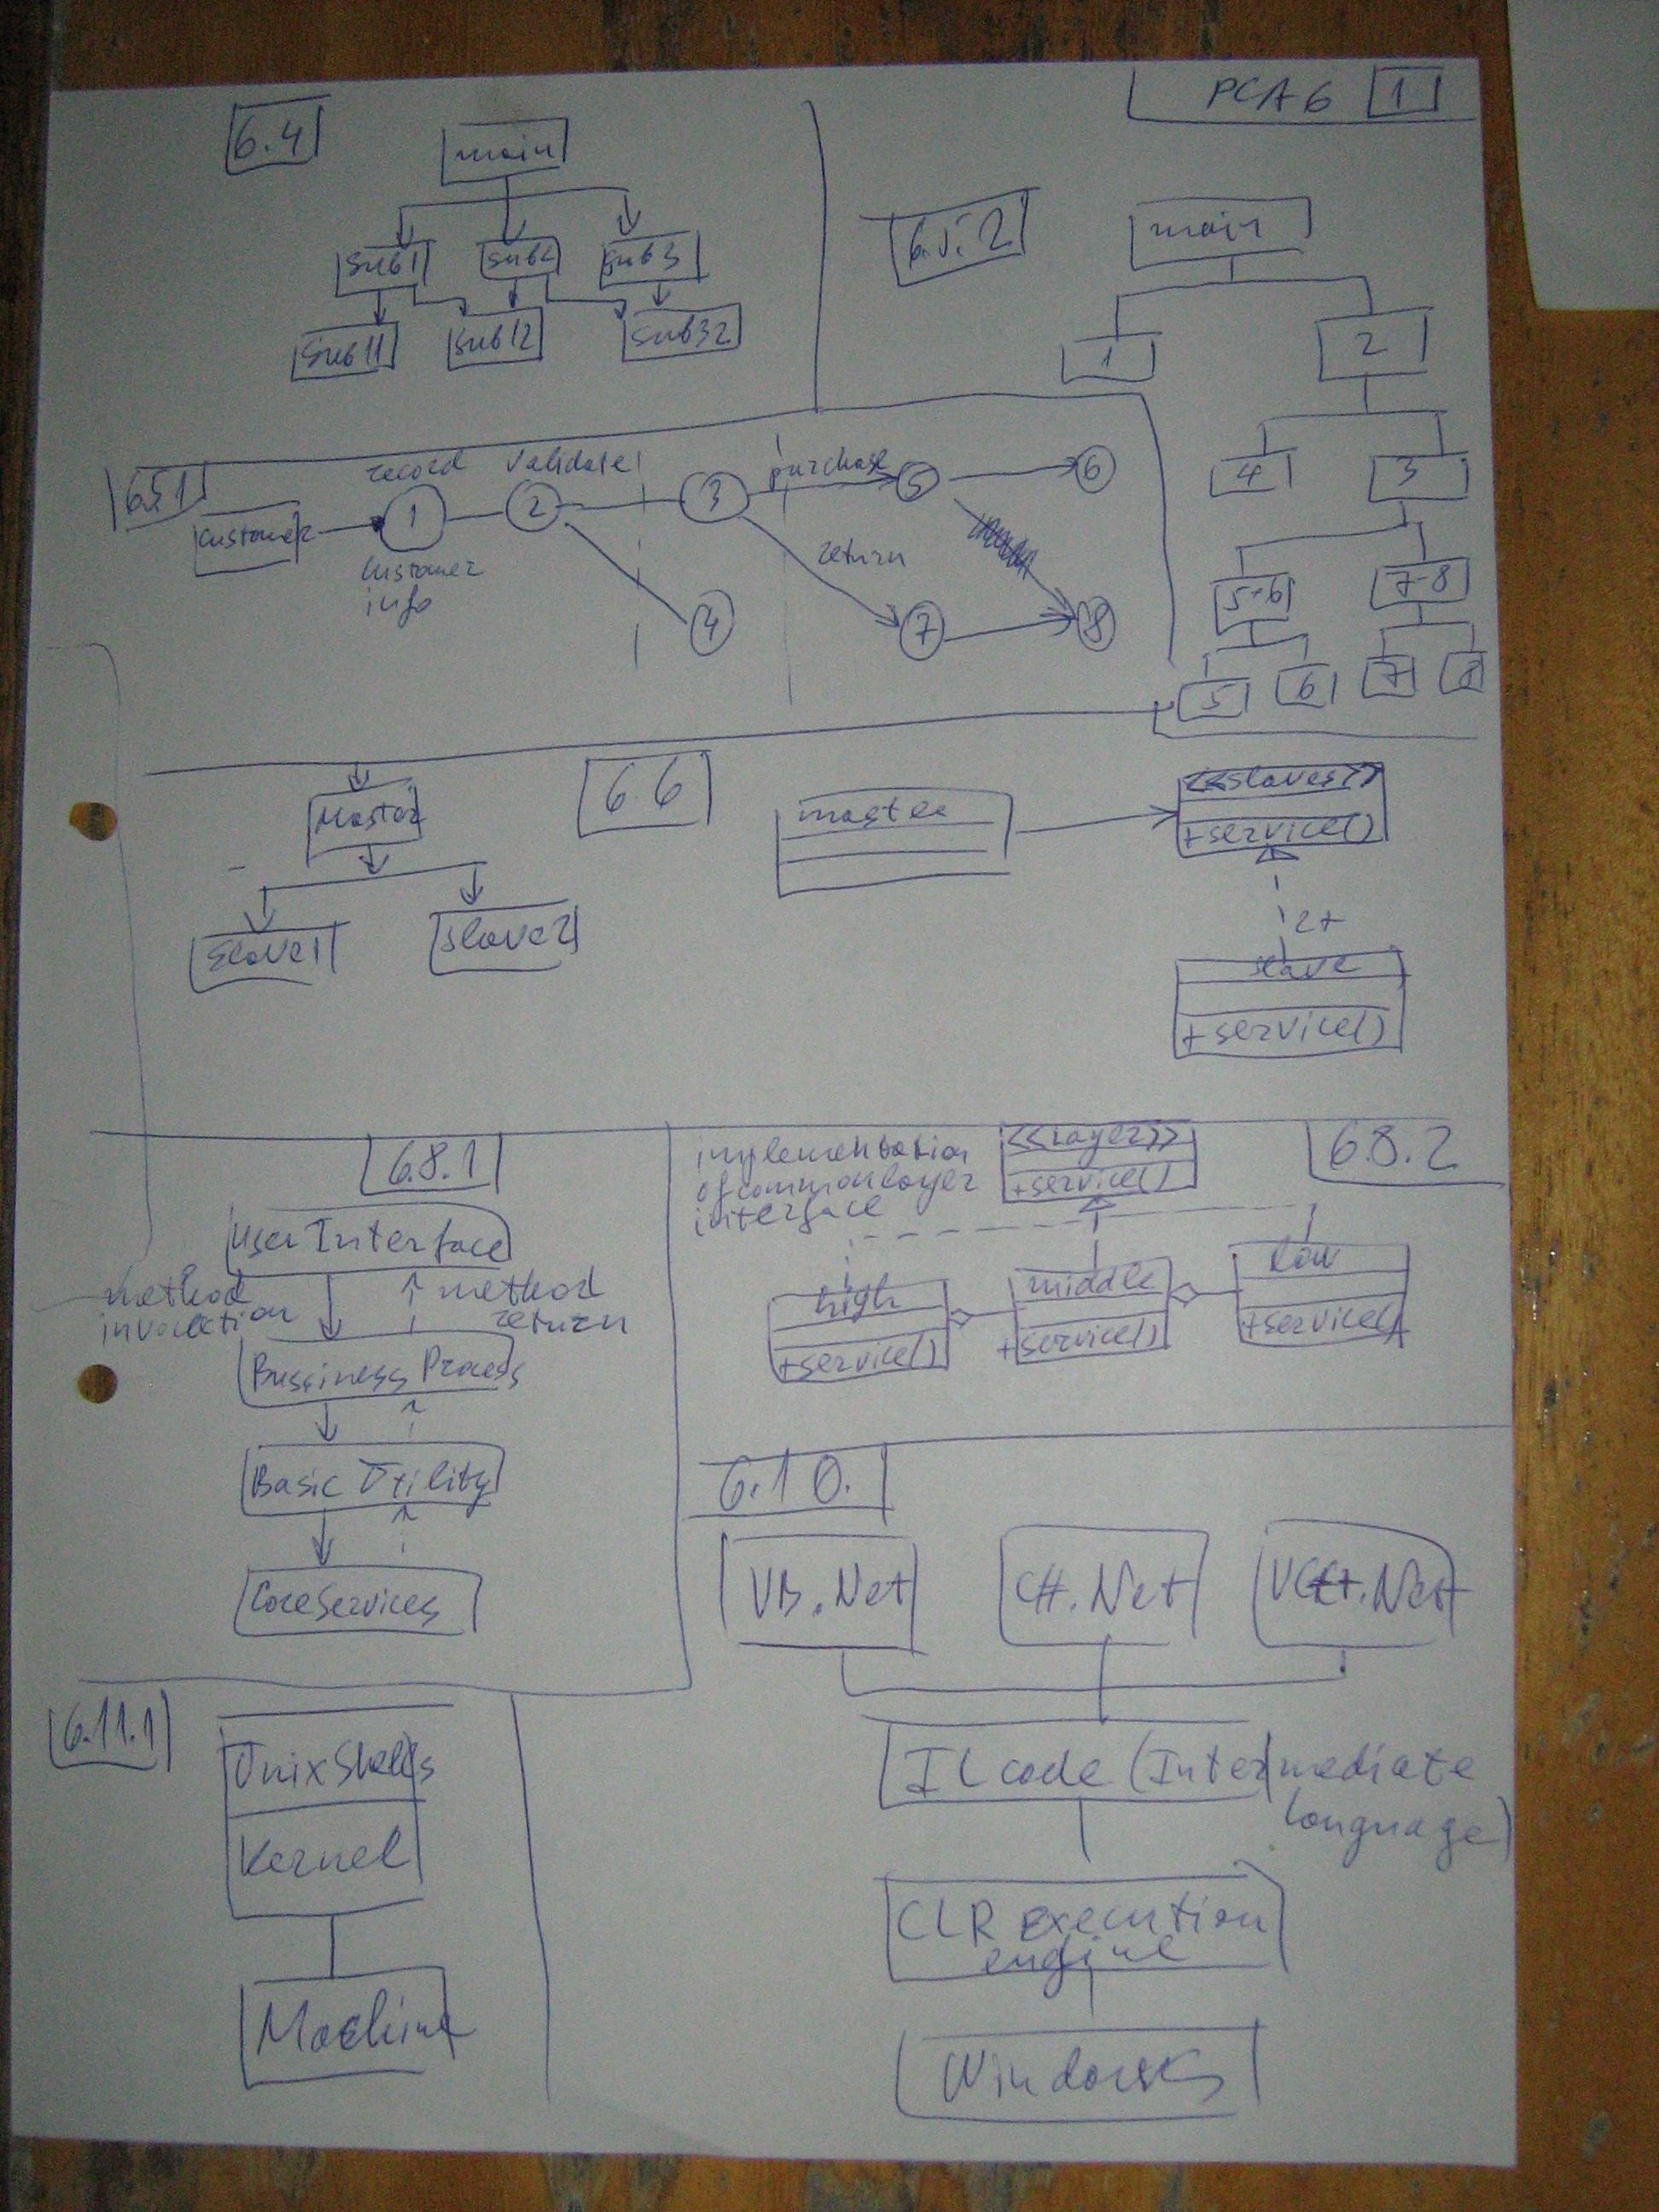 PCA6 1
6.4
main
sub1 sub2 sub3
sub11 sub12 sub32
6.5.2
main
1 2
4 3
5-6 7-8
5 6 7 8
6.5.1
record validate purchase
customer 1 2 3 5 6
customer
info
return
4 7 8
6.6
Master
slave1 slave2
master
<<slaves>>
+service()
2+
slave
+service()
6.8.1
User Interface
method
invocation
method
return
Bussiness Process
Basic Utility
Core Services
6.8.2
implementation
of common layer
interface
<<layer>>
+service()
high middle low
+service() +service() +service()
6.10.
VB.Net C#.Net VC++.Net
IL code (Intermediate
language)
CLR execution
engine
Windows
6.11.1
Unix Shells
Kernel
Machine